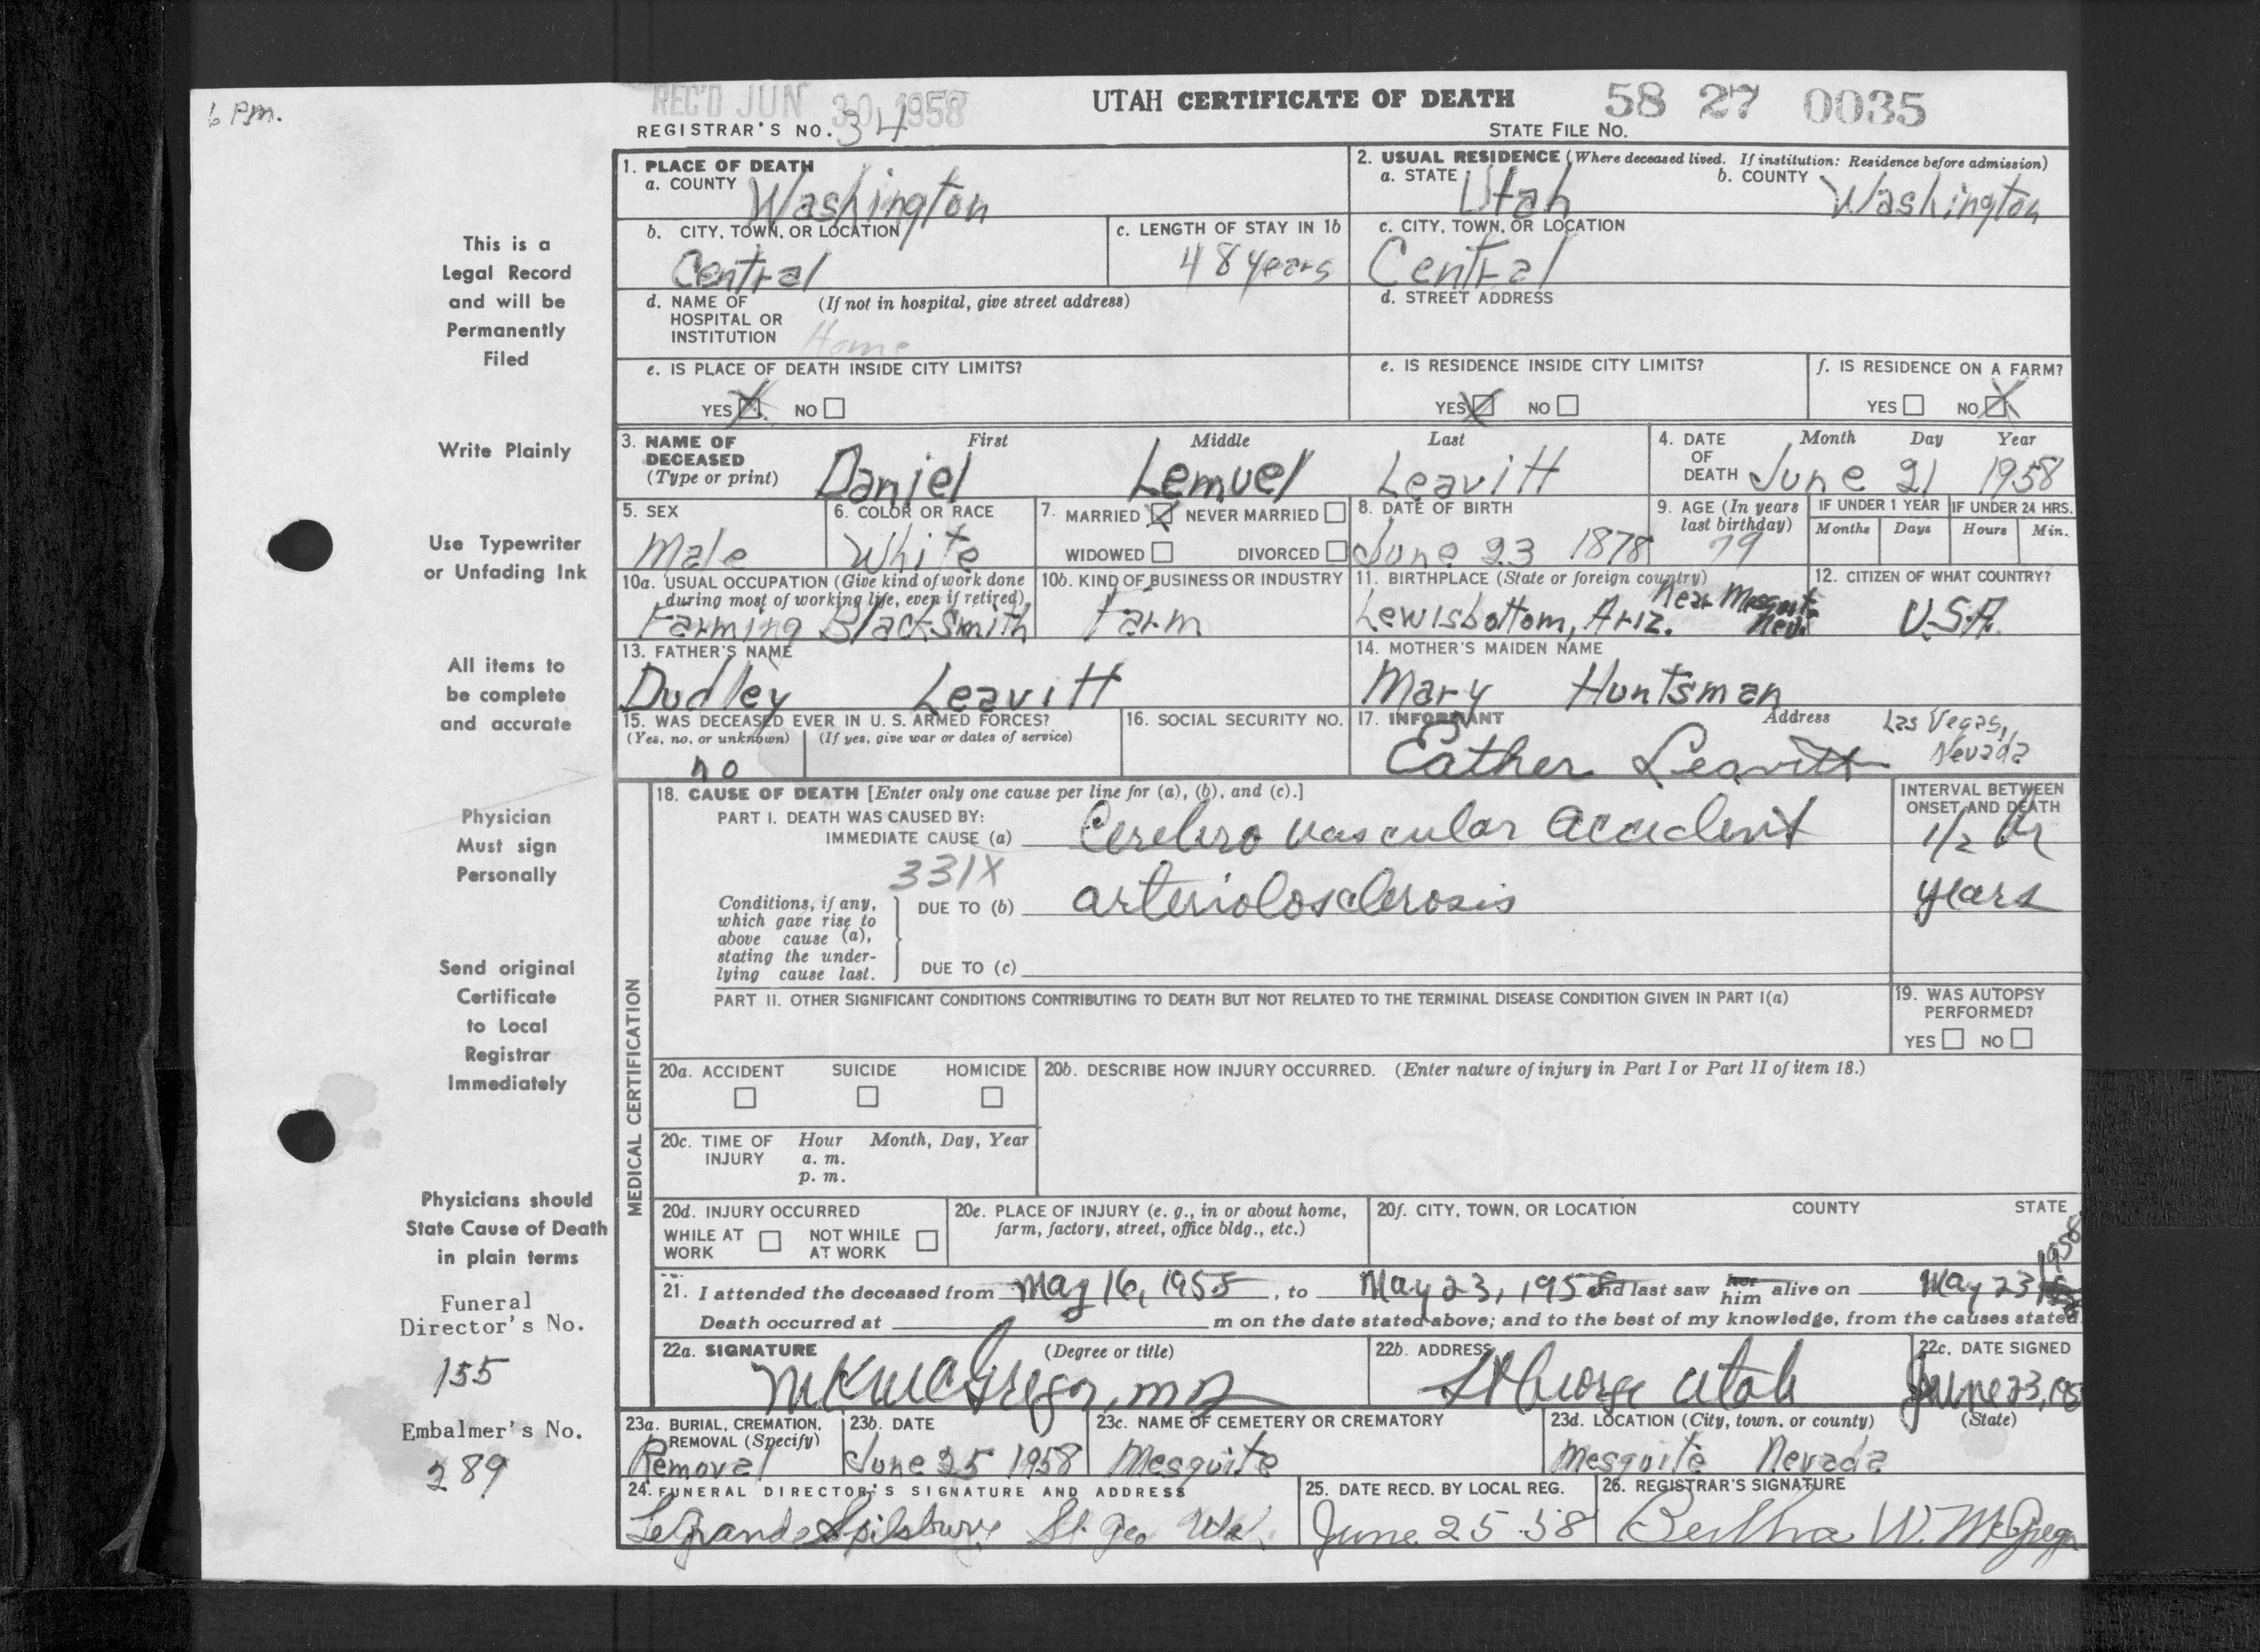 6 P.m.
REC'D JUN 30 1958
UTAH CERTIFICATE OF DEATH
58 27 0035
REGISTRAR'S NO. 34
STATE FILE NO.
1. PLACE OF DEATH
a. COUNTY Washington
2. USUAL RESIDENCE (Where deceased lived. If institution: Residence before admission)
a. STATE Utah b. COUNTY Washington
b. CITY, TOWN, OR LOCATION Central
c. LENGTH OF STAY IN 1b 48 years
c. CITY, TOWN, OR LOCATION Central
d. NAME OF HOSPITAL OR INSTITUTION (If not in hospital, give street address) Home
d. STREET ADDRESS
e. IS PLACE OF DEATH INSIDE CITY LIMITS?
YES X NO
e. IS RESIDENCE INSIDE CITY LIMITS?
YES X NO
f. IS RESIDENCE ON A FARM?
YES NO X
3. NAME OF DECEASED (Type or print) First Middle Last
Daniel Lemuel Leavitt
4. DATE OF DEATH Month Day Year
June 21 1958
5. SEX Male
6. COLOR OR RACE White
7. MARRIED X NEVER MARRIED
WIDOWED DIVORCED
8. DATE OF BIRTH June 23 1878
9. AGE (In years last birthday) 79
IF UNDER 1 YEAR Months Days
IF UNDER 24 HRS. Hours Min.
10a. USUAL OCCUPATION (Give kind of work done during most of working life, even if retired)
Farming Blacksmith
10b. KIND OF BUSINESS OR INDUSTRY Farm
11. BIRTHPLACE (State or foreign country)
Lewisbottom, Ariz. Near Mesquit Nev.
12. CITIZEN OF WHAT COUNTRY? U.S.A.
13. FATHER'S NAME Dudley Leavitt
14. MOTHER'S MAIDEN NAME Mary Huntsman
15. WAS DECEASED EVER IN U. S. ARMED FORCES?
(Yes, no, or unknown) (If yes, give war or dates of service)
no
16. SOCIAL SECURITY NO.
17. INFORMANT Address
Eather Leavitt Las Vegas, Nevada
MEDICAL CERTIFICATION
18. CAUSE OF DEATH [Enter only one cause per line for (a), (b), and (c).]
INTERVAL BETWEEN ONSET AND DEATH
PART I. DEATH WAS CAUSED BY:
IMMEDIATE CAUSE (a) Cerebro vascular accident 1/2 hr
331X
Conditions, if any, which gave rise to above cause (a), stating the underlying cause last.
DUE TO (b) arteriolosclerosis years
DUE TO (c)
PART II. OTHER SIGNIFICANT CONDITIONS CONTRIBUTING TO DEATH BUT NOT RELATED TO THE TERMINAL DISEASE CONDITION GIVEN IN PART I(a)
19. WAS AUTOPSY PERFORMED?
YES NO
20a. ACCIDENT SUICIDE HOMICIDE
20b. DESCRIBE HOW INJURY OCCURRED. (Enter nature of injury in Part I or Part II of item 18.)
20c. TIME OF INJURY Hour Month, Day, Year
a. m.
p. m.
20d. INJURY OCCURRED
WHILE AT WORK NOT WHILE AT WORK
20e. PLACE OF INJURY (e. g., in or about home, farm, factory, street, office bldg., etc.)
20f. CITY, TOWN, OR LOCATION COUNTY STATE
21. I attended the deceased from May 16, 1958, to May 23, 1958 and last saw her him alive on May 23 1958
Death occurred at m on the date stated above; and to the best of my knowledge, from the causes stated
22a. SIGNATURE (Degree or title)
MKMcGregor, MD
22b. ADDRESS St George Utah
22c. DATE SIGNED June 23, 195
23a. BURIAL, CREMATION, REMOVAL (Specify) Removal
23b. DATE June 25 1958
23c. NAME OF CEMETERY OR CREMATORY Mesquite
23d. LOCATION (City, town, or county) (State)
Mesquite Nevada
24. FUNERAL DIRECTOR'S SIGNATURE AND ADDRESS
LeGrande Spilsbury St. Geo
25. DATE RECD. BY LOCAL REG. June 25 58
26. REGISTRAR'S SIGNATURE Bertha W. McGregor
This is a
Legal Record
and will be
Permanently
Filed
Write Plainly
Use Typewriter
or Unfading Ink
All items to
be complete
and accurate
Physician
Must sign
Personally
Send original
Certificate
to Local
Registrar
Immediately
Physicians should
State Cause of Death
in plain terms
Funeral
Director's No.
155
Embalmer's No.
289